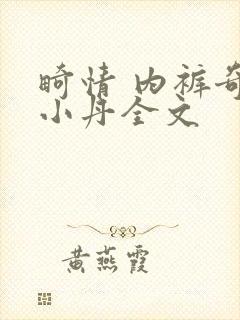 畸情 内裤奇
小丹全文
黄燕霞